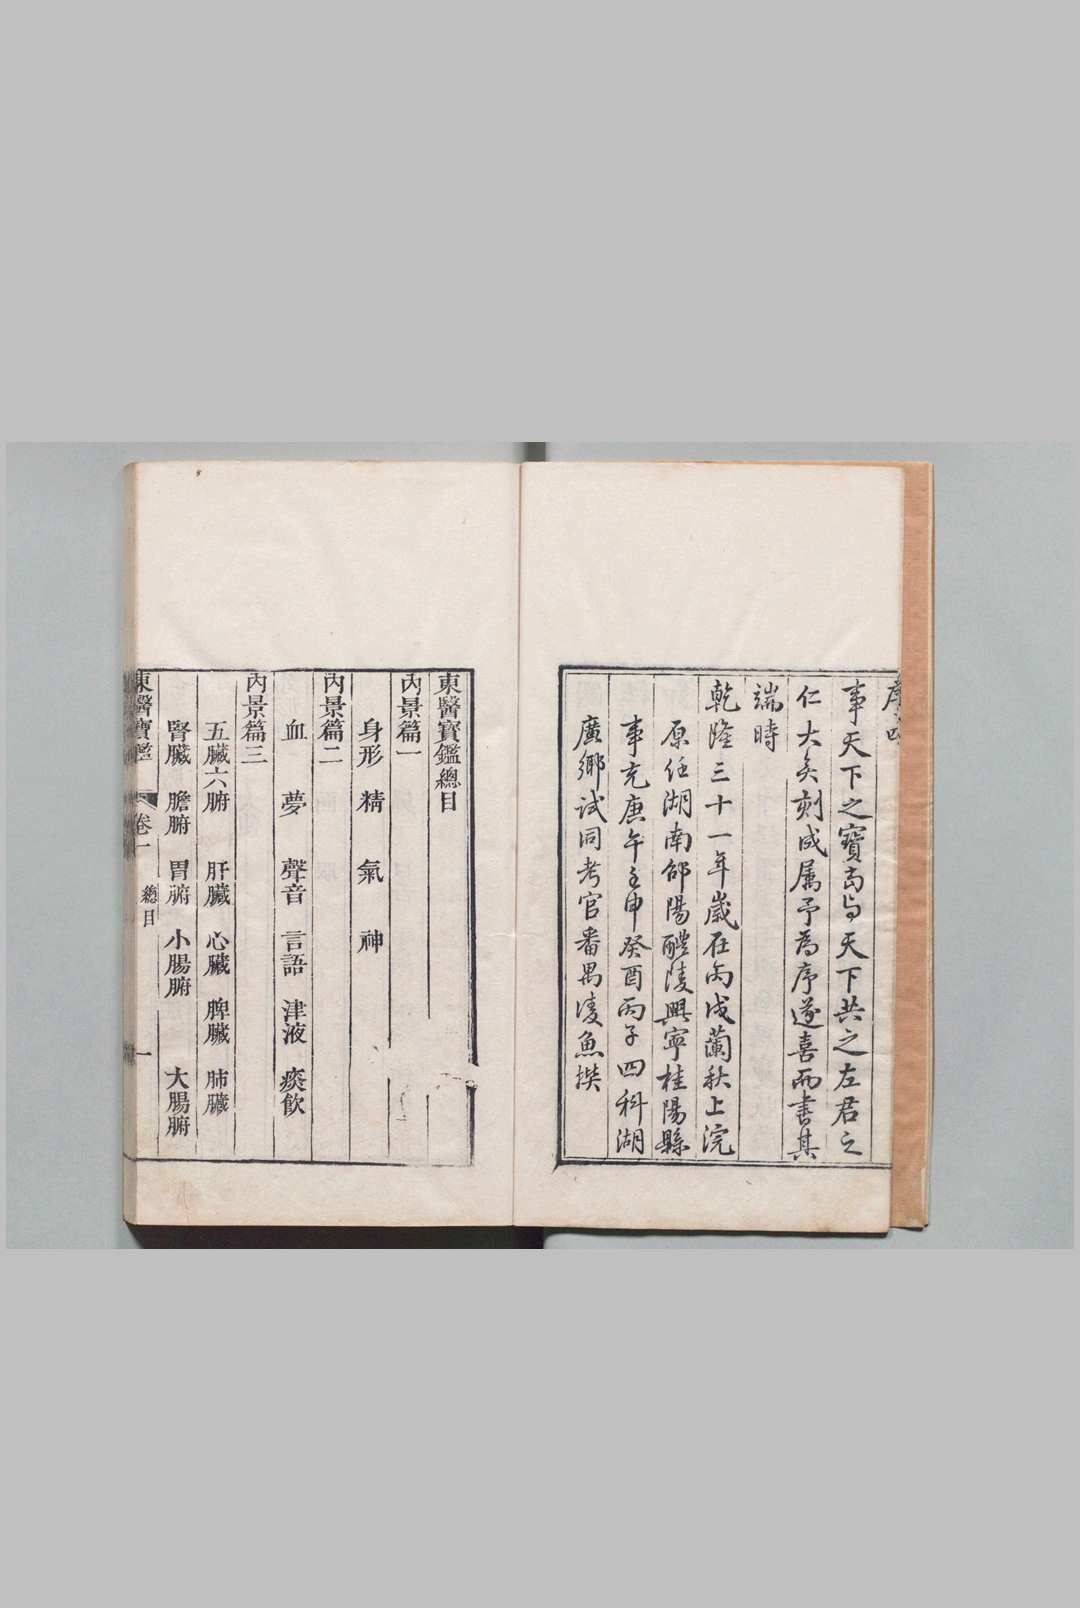 序四
事天下之寶當与天下共之左君之
仁大矣刻成属予為序遂喜而書其
端時
乾隆三十一年歲在丙戌蘭秋上浣
原任湖南邵陽醴陵興寧桂陽縣
事充庚午壬申癸酉丙子四科湖
廣鄉試同考官番禺凌魚撰
東醫寶鑑總目
內景篇一
身形 精 氣 神
內景篇二
血 夢 聲音 言語 津液 痰飲
內景篇三
五臟六腑 肝臟 心臟 脾臟 肺臟
腎臟 膽腑 胃腑 小腸腑 大腸腑
東醫寶鑑 卷一 總目 一